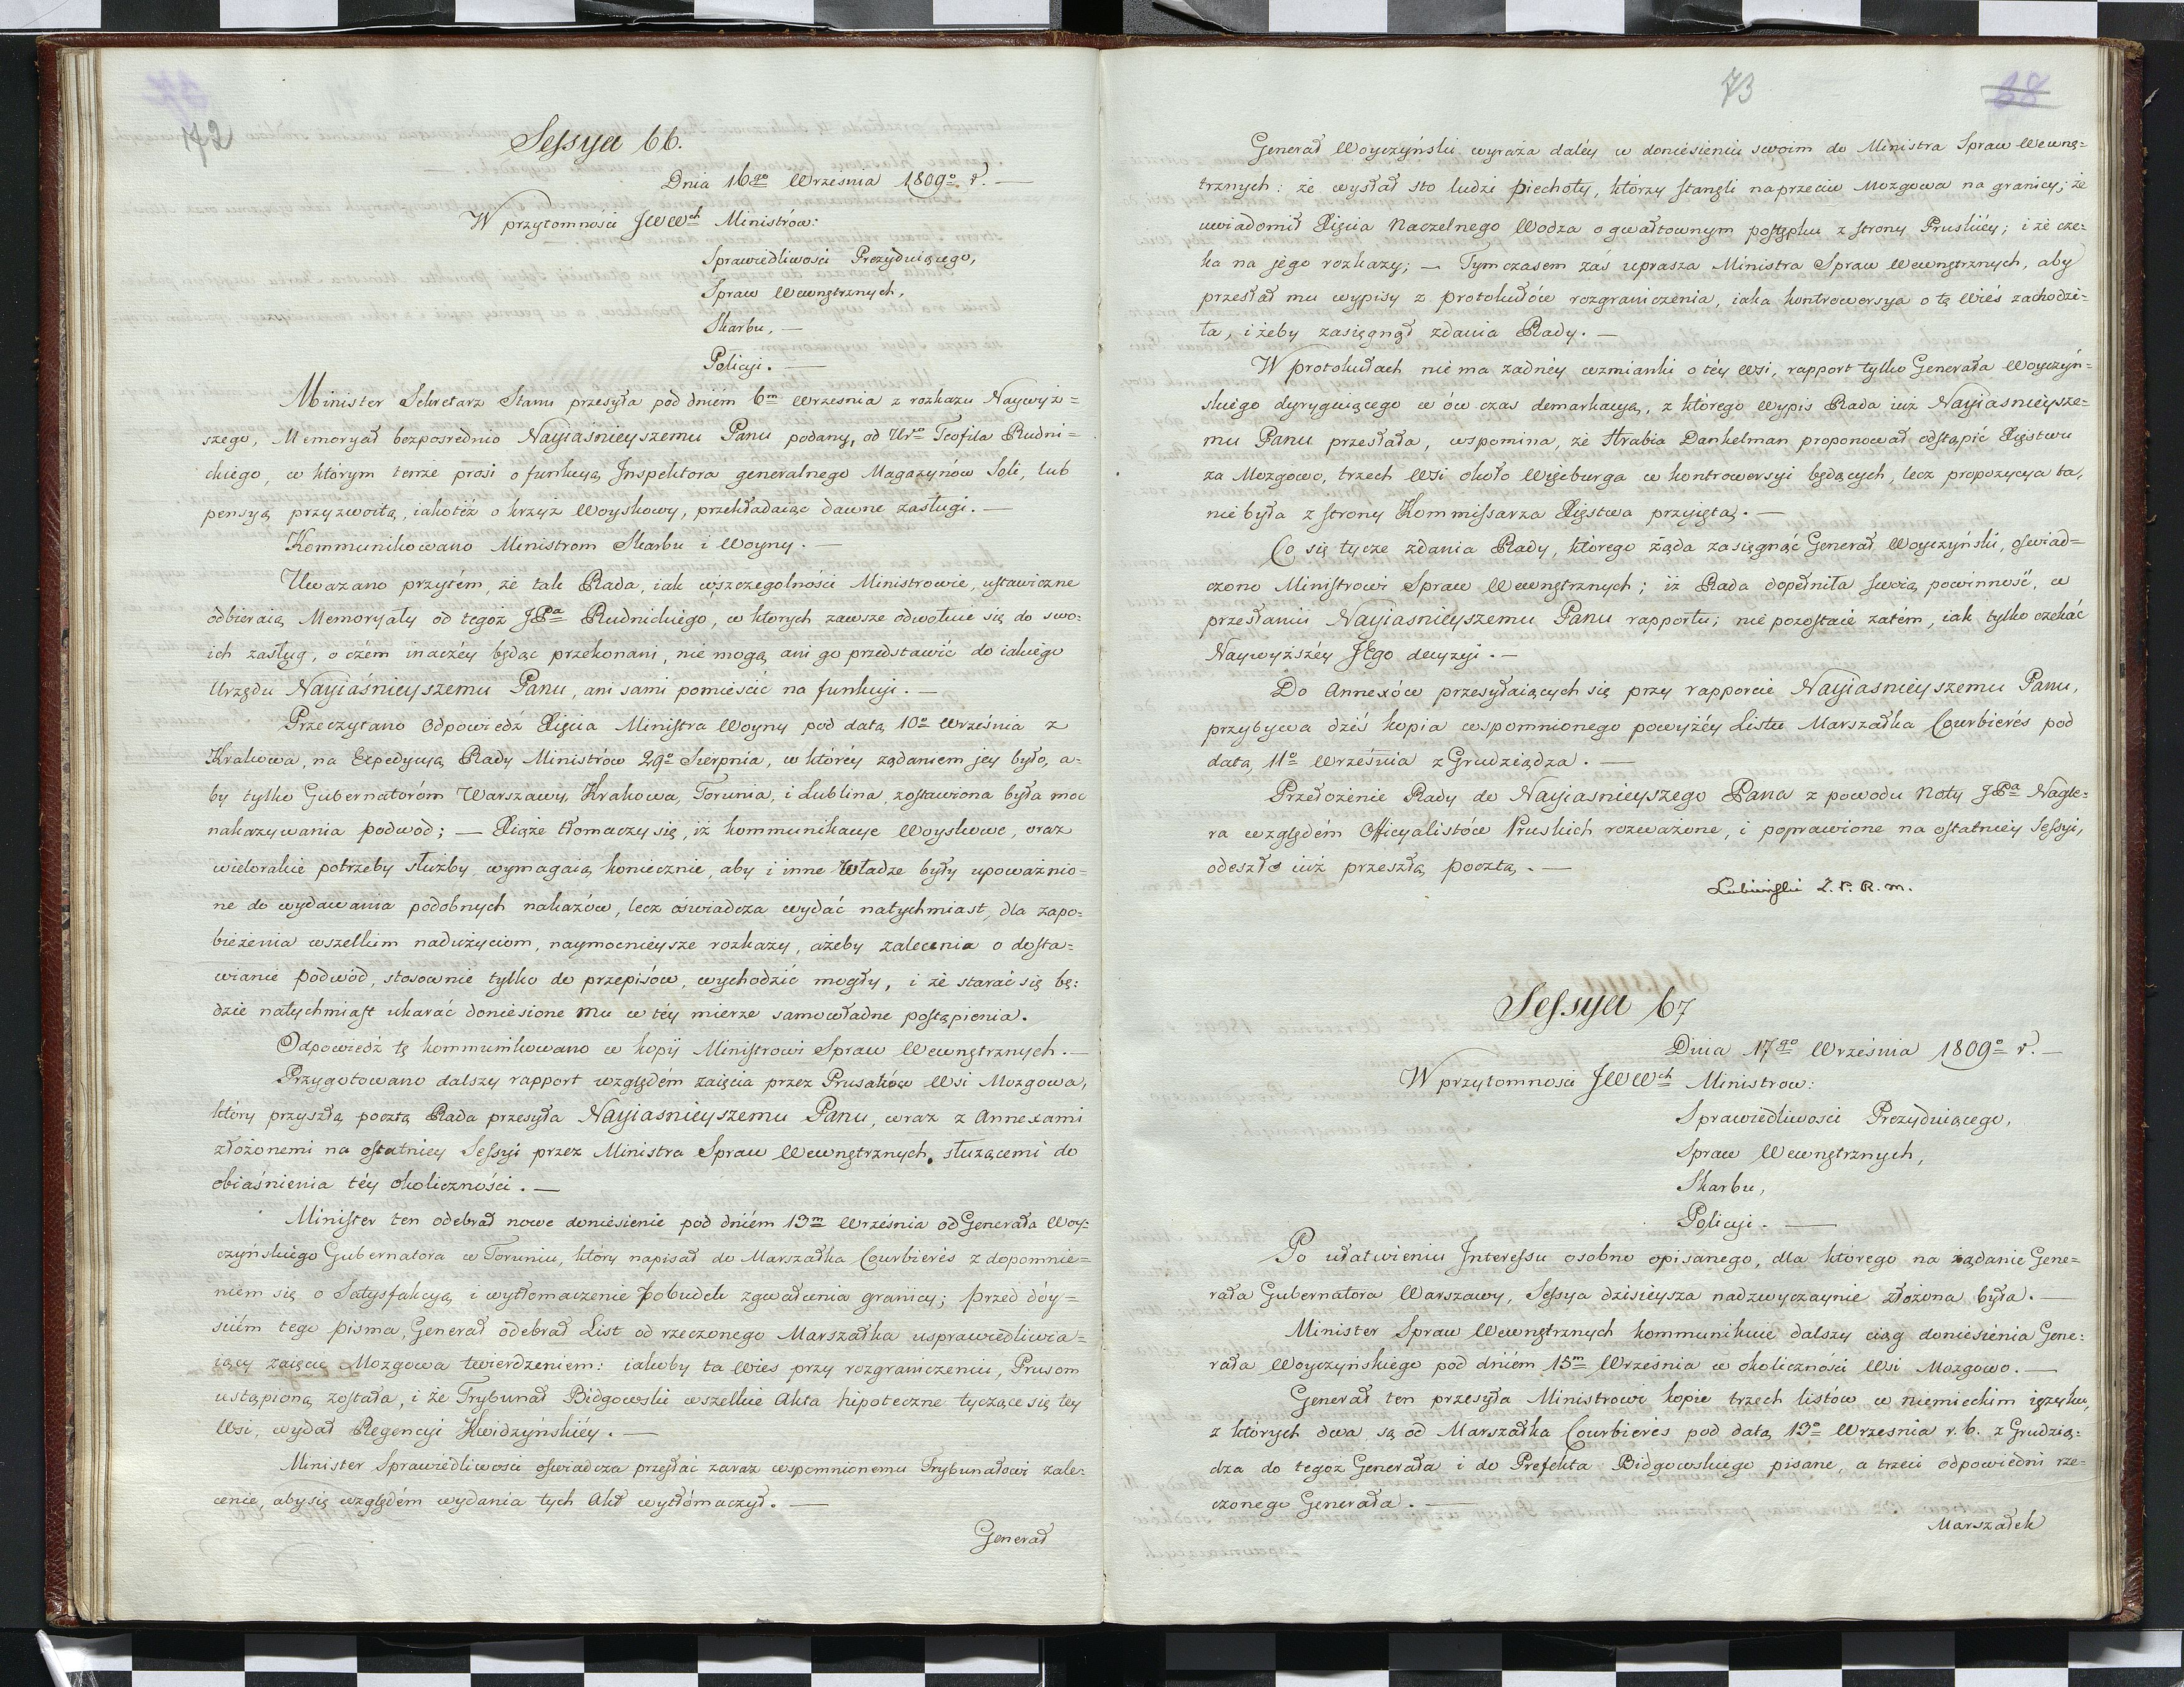 72
Sessya 66.
Dnia 16go Września 1809o r. —
W przytomności JWWch Ministrów:
Sprawiedliwości Prezyduiącego,
Spraw Wewnętrznych,
Skarbu, —
Policyi. —
Minister Sekretarz Stanu przesyła pod dniem 6m Wrzesnia z rozkazu Naywyż=
szego, Memoryał bezpośrednio Nayiaśnieyszemu Panu podany, od Uro Teofila Rudni=
ckiego, w którym tenże prosi o funkcyą Inspektora generalnego Magazynów Soli, lub
pensyą przyzwoitą, iakotéż o krzyż Woyskowy, przekładaiąc dawne zasługi. —
Kommunikowano Ministrom Skarbu i Woyny. —
Uważano przytém, że tak Rada, iak wszczególności Ministrowie, ustawiczne
odbieraią Memoryały od tegoż JPa Rudnickiego, w których zawsze odwołuie się do swo=
ich zasług, o czém inaczéy będąc przekonani, nie mogą ani go przedstawić do iakiego
Urzędu Nayiaśnieyszemu Panu, ani sami pomieścić na funkcyi. —
Przeczytano Odpowiedź Xięcia Ministra Woyny pod datą 10o Września z
Krakowa, na Expedycyą Rady Ministrów 29o Sierpnia, w któréy żądaniem jey było, a=
by tylko Gubernatoróm Warszawy, Krakowa, Torunia, i Lublina, zostawiona była moc
nakazywania podwod; — Xiąże tłomaczy się, iż kommunikacye Woyskowe, oraz
wielorakie potrzeby służby wymagaią koniecznie, aby i inne Władze były upoważnio=
ne do wydawania podobnych nakazów, lecz oświadcza wydać natychmiast, dla zapo=
bieżenia wszelkim nadużyciom, naymocnieysze rozkazy, ażeby zalecenia o dosta=
wianie podwód, stosownie tylko do przepisów, wychodzić mogły, i że starać się bę=
dzie natychmiast ukarać doniesione mu w téy mierze samowładne postąpienia.
Odpowiedź tę kommunikowano w kopij Ministrowi Spraw Wewnętrznych. —
Przygotowano dalszy rapport względém zaięcia przez Prusaków Wsi Mozgowa,
który przyszłą pocztą Rada przesyła Nayjasnieyszemu Panu, wraz z Annexami
złożonemi na ostatniey Sessyi przez Ministra Spraw Wewnętrznych, służącemi do
obiaśnienia téy okoliczności. —
Minister ten odebrał nowe doniesienie pod dniém 13m Września od Generała Woy=
czyńskiego Gubernatora w Toruniu, który napisał do Marszałka Courbierés z dopomnie=
niem się o Satysfakcyą i wytłomaczenie pobudek zgwałcenia granicy; przed dóy=
sciém tego pisma, Generał odebrał List od rzeczonego Marszałka usprawiedliwia=
iący zaięcie Mozgowa twierdzeniem: iakoby ta Wies przy rozgraniczeniu, Prusom
ustąpioną została, i że Trybunał Bidgowski wszelkie Akta hipoteczne tyczące się tey
Wsi, wydał Regencyi Kwidzyńskiéy. —
Minister Sprawiedliwosci oswiadcza przesłać zaraz wspomnionemu Trybunałowi zale=
cenie, aby się względém wydania tych Akt wytłómaczył. —
Generał
73
68
Generał Woyczyński wyraża daléy w doniesieniu swoim do Ministra Spraw Wewnę=
trznych: że wysłał sto ludzi piechoty, którzy stanęli naprzeciw Mozgowa na granicy; że
uwiadomił Xięcia Naczelnego Wodza o gwałtownym postępku z strony Pruskiéy; i że cze=
ka na jego rozkazy; — Tymczasem zaś uprasza Ministra Spraw Wewnętrznych, aby
przesłał mu wypisy z protokułów rozgraniczenia, iaka kontrowersya o tę Wieś zachodzi=
ła, i żeby zasięgnął zdania Rady. —
W protokułach nie ma żadnéy wzmianki o téy Wsi, rapport tylko Generała Woyczyń=
skiego dyryguiącego w ów czas demarkacyą, z którego wypis Rada iuż Nayiasnieysze=
mu Panu przesłała, wspomina, że Hrabia Dankelman proponował odstąpić Xięstwu
za Mozgowo, trzech Wsi około Więcburga w kontrowersyi będących, lecz propozycya ta,
nie była z strony Kommissarza Xięstwa przyiętą. —
Co się tycze zdania Rady, którego żąda zasięgnąć Generał Woyczyński, oswiad=
czono Ministrowi Spraw Wewnętrznych; iż Rada dopełniła swoią powinność, w
przesłaniu Nayiasnieyszemu Panu rapportu; nie pozostaie zatém, iak tylko czekać
Naywyższéy JEgo decyzyi. —
Do Annexów przesyłaiących się przy rapporcie Nayiasnieyszemu Panu,
przybywa dziś kopia wspomnionego powyżéy Listu Marszałka Courbierés pod
datą 11o Września z Grudziądza. —
Przełożenie Rady do Nayiasnieyszego Pana z powodu Noty JPa Nagle=
ra względém Officyalistów Pruskich rozważone, i poprawione na ostatniey Sessyi,
odeszło iuż przeszłą pocztą. —
Lubiński Z. S. R. M.
Sessya 67
Dnia 17go Września 1809o r. —
W przytomności JWWch Ministrow:
Sprawiedliwosci Prezyduiącego,
Spraw Wewnętrznych,
Skarbu,
Policyi. —
Po ułatwieniu Interessu osobno opisanego, dla którego na żądanie Gene=
rała Gubernatora Warszawy, Sessya dzisieysza nadzwyczaynie złożona była. —
Minister Spraw Wewnętrznych kommunikuie dalszy ciąg doniesienia Gene=
rała Woyczyńskiego pod dniém 15m Września w okoliczności Wsi Mozgowo. —
Generał ten przesyła Ministrowi kopie trzech listów w niemieckim ięzyku,
z których dwa są od Marszałka Courbierés pod datą 13o Wrzesnia r. b. z Grudzią=
dza do tegoż Generała i do Prefekta Bidgowskiego pisane, a trzeci odpowiedni rze=
czonego Generała. —
Marszałek